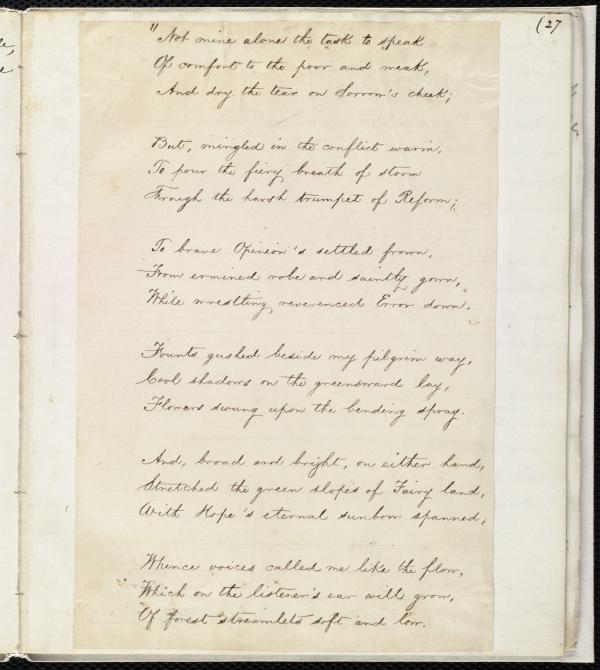 (27
"Not mine alone the task to speak
Of comfort to the poor and weak,
And dry the tear on Sorrow's cheek;
But, mingled in the conflict warm,
To pour the fiery breath of storm
Through the harsh trumpet of Reform;
To brave Opinion's settled frown,
From ermined robe and saintly gown,
While wrestling reverenced Error down.
Founts gushed beside my pilgrim way,
Cool shadows on the greensward lay,
Flowers swung upon the bending spray.
And, broad and bright, on either hand,
Stretched the green slopes of Fairy land,
With Hope's eternal sunbow spanned;
Whence voices called me like the flow,
Which on the listener's ear will grow,
Of forest streamlets soft and low.